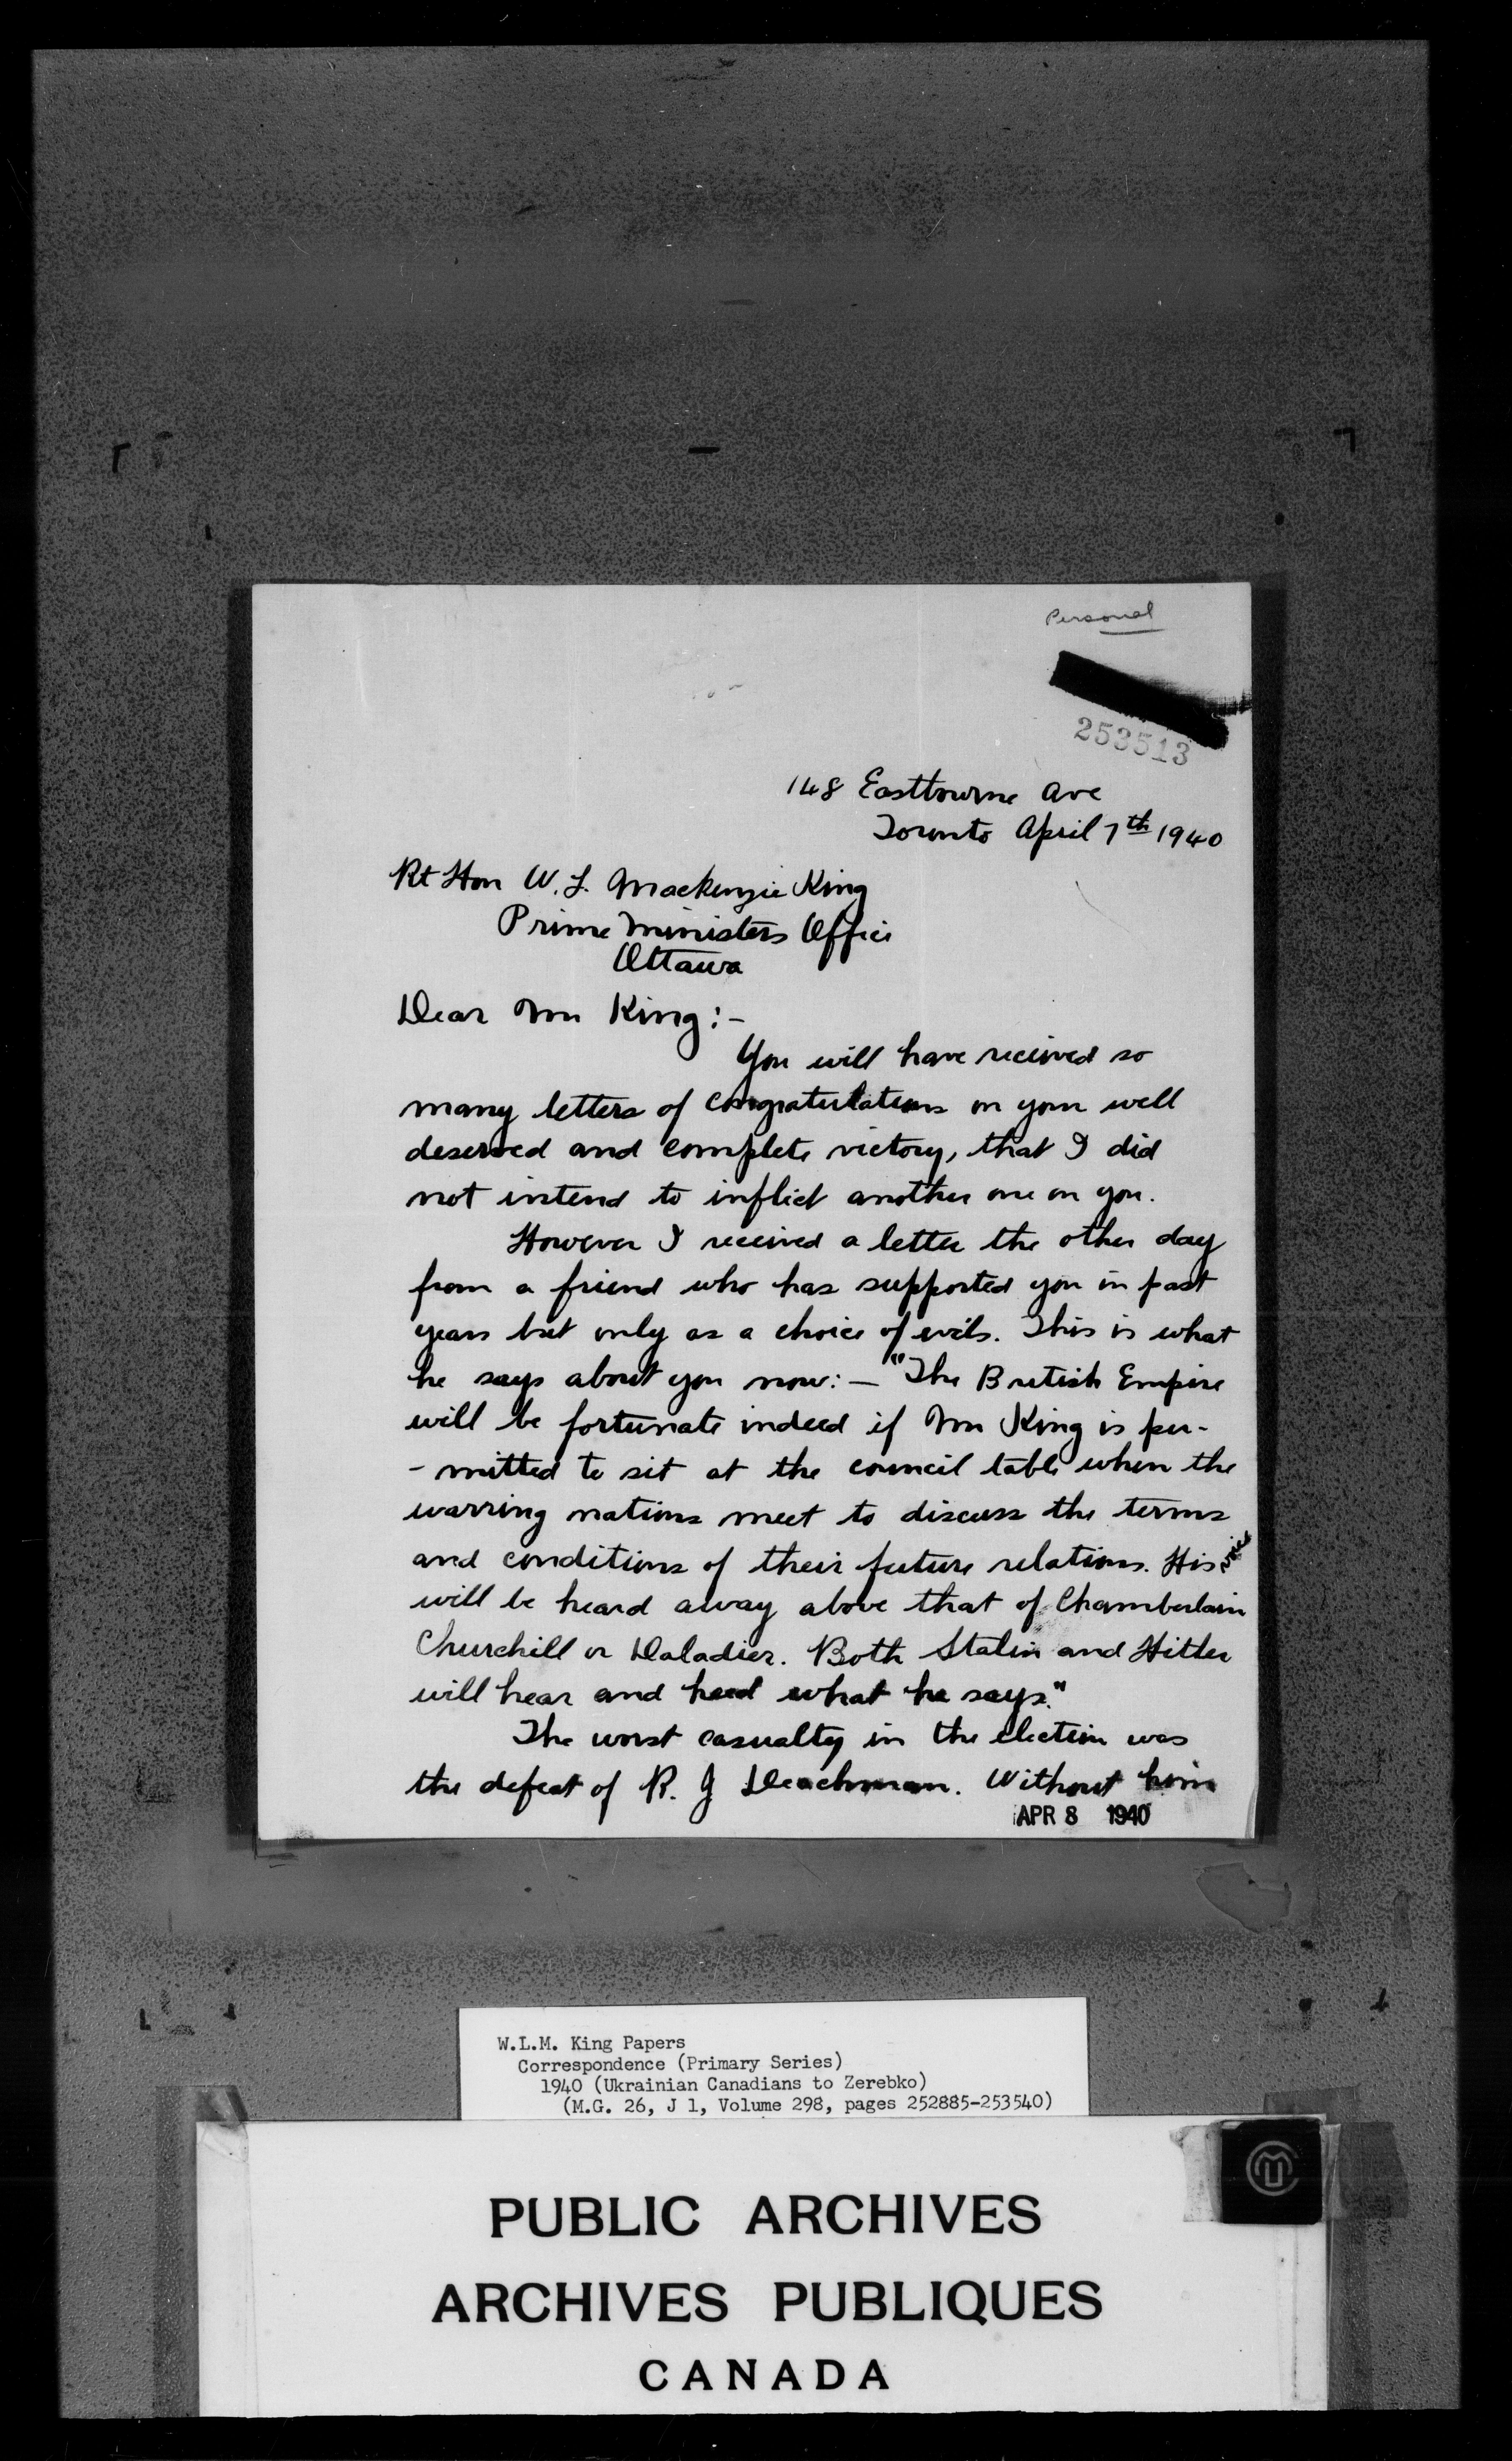 Personal
253513
148 Eastbourne Ave
Toronto April 7th 1940
Rt Hon W. L. Mackenzie King
Prime Ministers Office
Ottawa
Dear Mr King:-
You will have recieved so
many letters of congratulations on your well
deserved and complete victory, that I did
not intend to inflict another one on you.
However I received a letter the other day
from a friend who has supported you in past
years but only as a choice of evils. This is what
he says about you now:- "The British Empire
will be fortunate indeed if Mr King is per-
-mitted to sit at the council table when the
warring nations meet to discuss the terms
and conditions of their future relations. His voice
will be heard away above that of Chamberlain
Churchill or Daladier. Both Stalin and Hitler
will hear and heed what he says."
The worst casualty in the election was
the defeat of R. J Deachman. Without him
APR 8 1940
W.L.M. King Papers
Correspondence (Primary Series)
1940 (Ukrainian Canadians to Zerebko)
(M.G. 26, J 1, Volume 298, pages 252885-253540)
PUBLIC ARCHIVES
ARCHIVES PUBLIQUES
CANADA